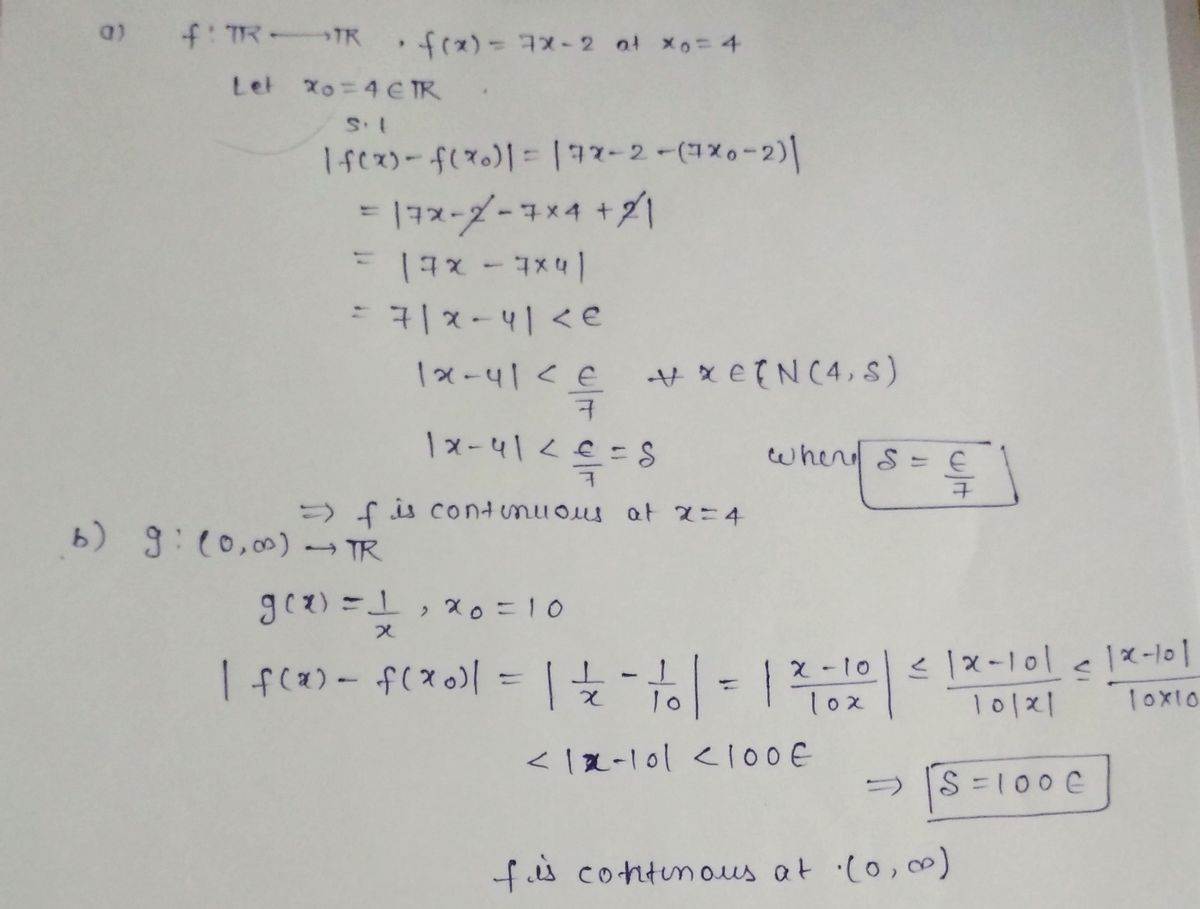 a) f : ℝ → ℝ , f(x) = 7x - 2 at x₀ = 4
Let x₀ = 4 ∈ ℝ .
s.t
|f(x) - f(x₀)| = |7x - 2 - (7x₀ - 2)|
= |7x - 2 - 7×4 + 2|
= |7x - 7×4|
= 7|x - 4| < ϵ
|x - 4| < ϵ/7 ∀ x ∈ { N(4, δ)
|x - 4| < ϵ/7 = δ where δ = ϵ/7
⇒ f is continuous at x = 4
b) g : (0, ∞) → ℝ
g(x) = 1/x , x₀ = 10
|f(x) - f(x₀)| = |1/x - 1/10| = |(x - 10)/10x| ≤ |x - 10|/10|x| ≤ |x - 10|/10×10
< |x - 10| < 100ϵ
⇒ δ = 100ϵ
f is continous at (0, ∞)